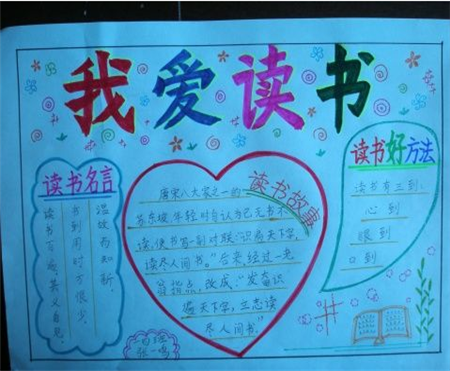 我爱读书
读书名言
温故而知新。
书到用时方恨少
读书百遍,其义自见。
读书故事
唐宋八大家之一的
苏东坡,年轻时自认为已无书不
读,便书写一副对联:"识遍天下字,
读尽人间书。"后来经过一老
翁指点,改成:"发奋识
遍天下字,立志读
尽人间书"
读书好方法
读书有三到:
心到
眼到
口到
张一鸣